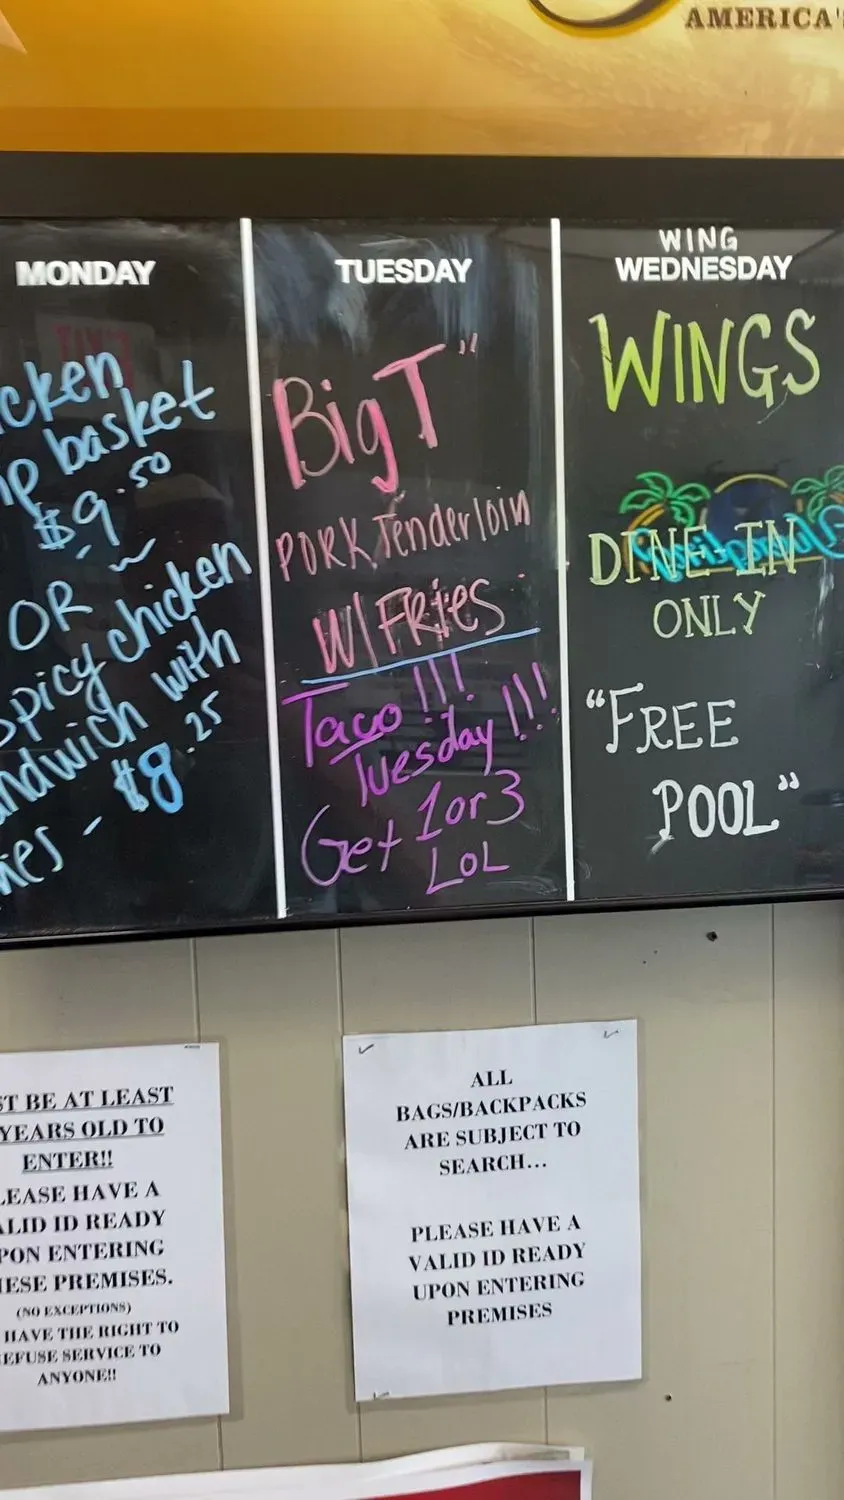 AMERICA'
MONDAY
cken
p basket
$9.50
OR
spicy chicken
ndwich with
ies - $8.25
TUESDAY
Big T"
PORK Tenderloin
W/ FRies
Taco!!!
Tuesday!!!
Get 1 or 3
LOL
WING
WEDNESDAY
WINGS
DINE-IN
ONLY
"FREE
POOL"
ST BE AT LEAST
YEARS OLD TO
ENTER!!
LEASE HAVE A
ALID ID READY
PON ENTERING
HESE PREMISES.
(NO EXCEPTIONS)
HAVE THE RIGHT TO
EFUSE SERVICE TO
ANYONE!!
ALL
BAGS/BACKPACKS
ARE SUBJECT TO
SEARCH...
PLEASE HAVE A
VALID ID READY
UPON ENTERING
PREMISES